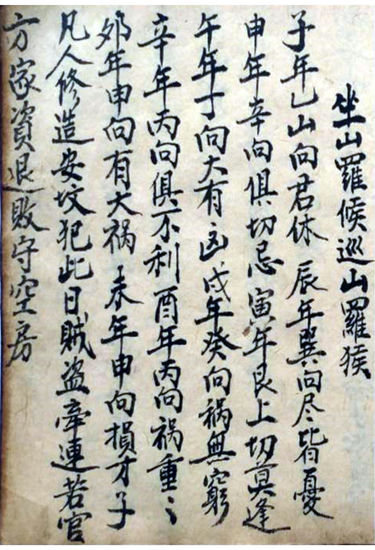 坐山羅候巡山羅猴
子年乙山向君休 辰年巽向尽皆憂
申年辛向俱切忌 寅年艮上切莫逢
午年丁向大有凶 戌年癸向祸無窮
辛年丙向俱不利 酉年丙向祸重〻
郊年申向有大祸 未年申向損才子
凡人修造安坟犯此日賊盗牽連若官
方家資退敗守空房